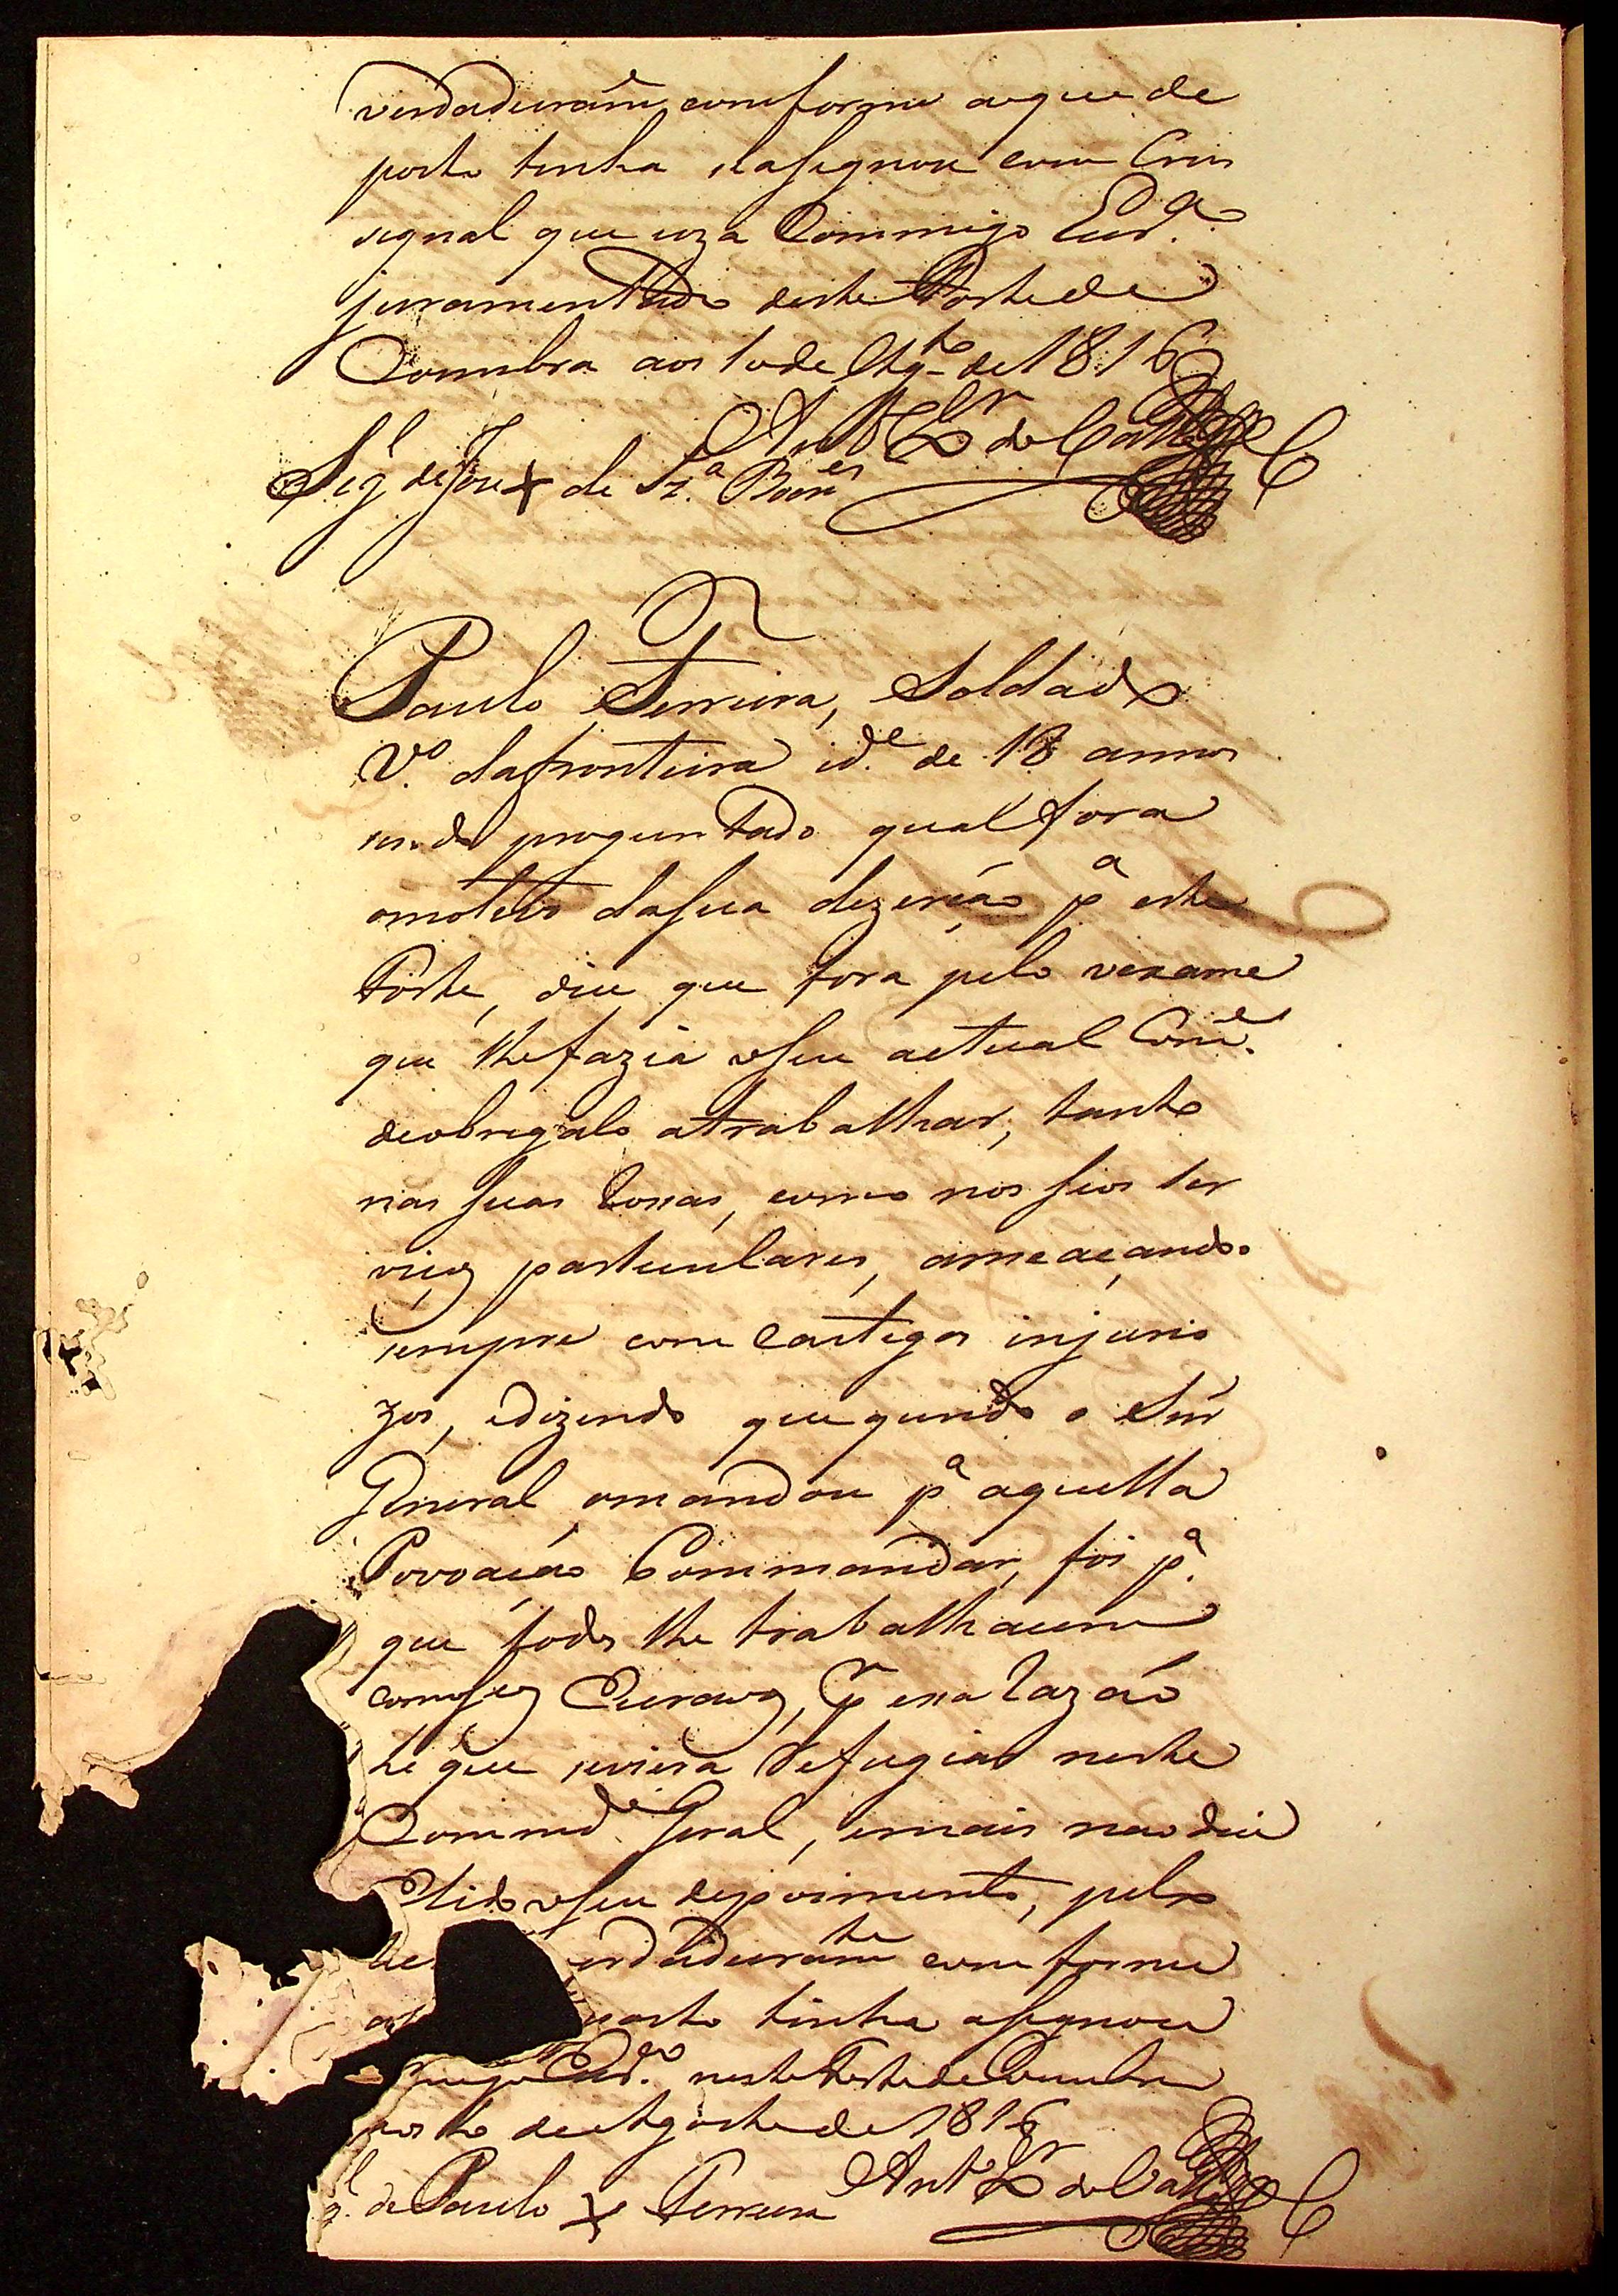 verdadeiram.te conforme aque de
posto tinha eaſsignou com Crus
signal que uza Commigo Cud.ª
juramentado deste Forte de
Coimbra aos 10 de Ag.to de 1816
Ant.º de
Sig.l de Joze + de Sz.ª
Paulo Ferreira, Soldado
V.º dafronteira id.e de 18 annos
sendo proguntado qual fora
omotivo daſua dezerção p.ª este
Forte, dice que fora pelo vexame
que lhefazia oſeu actual Com.e
deobrigalo atrabalhar, tanto
nas ſuas Rossas, como nos ſeos ser
viços particulares, ameaçando
sempre com Castigos injurio
zos, edizendo que quando o Snr
General omandou p.ª aquella
Povoação Commandar, foi p.ª
que todos lhe trabalhacem
comoſeos Escravos, p.r essa Razaõ
hé que seviera Refugiar neste
Command.e Geral, emais naõ dice
Lido oſeu depoimento, pelo
erdadeiram.te conforme
posto tinha aſsignou
migo Cud.º nesteForte de Coimbra
aos 10 de Agosto de 1816
g.l de Paulo + Ferreira Ant.º de